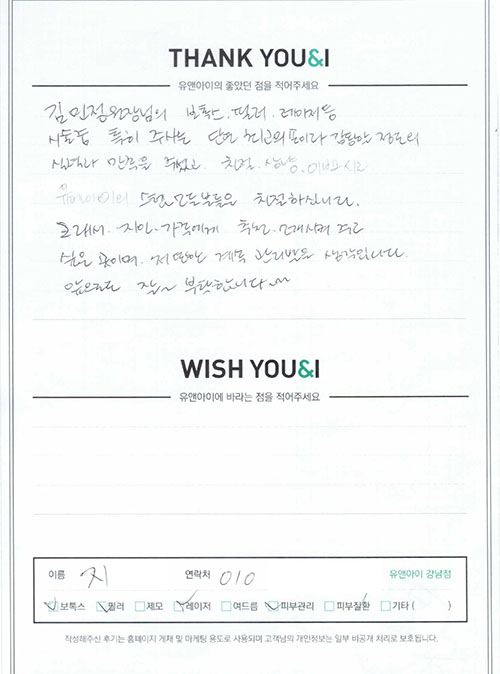 THANK YOU&I
유앤아이의 좋았던 점을 적어주세요
김민정원장님의 보톡스. 필러. 레이저등
시술중 특히 주사는 단연 최고의
만족을 주었고. 친절. 상냥.
유앤아이의 모든분들은 친절하십니다.
그래서. 지인. 가족에게
싶은 곳이며. 저 또한 계속 관리받을 생각입니다.
앞으로도 잘~ 부탁합니다~
WISH YOU&I
유앤아이에 바라는 점을 적어주세요
이름 지 연락처 010 유앤아이 강남점
보톡스 필러 제모 레이저 여드름 피부관리 피부질환 기타 ( )
작성해주신 후기는 홈페이지 게재 및 마케팅 용도로 사용되며 고객님의 개인정보는 일부 비공개 처리로 보호됩니다.